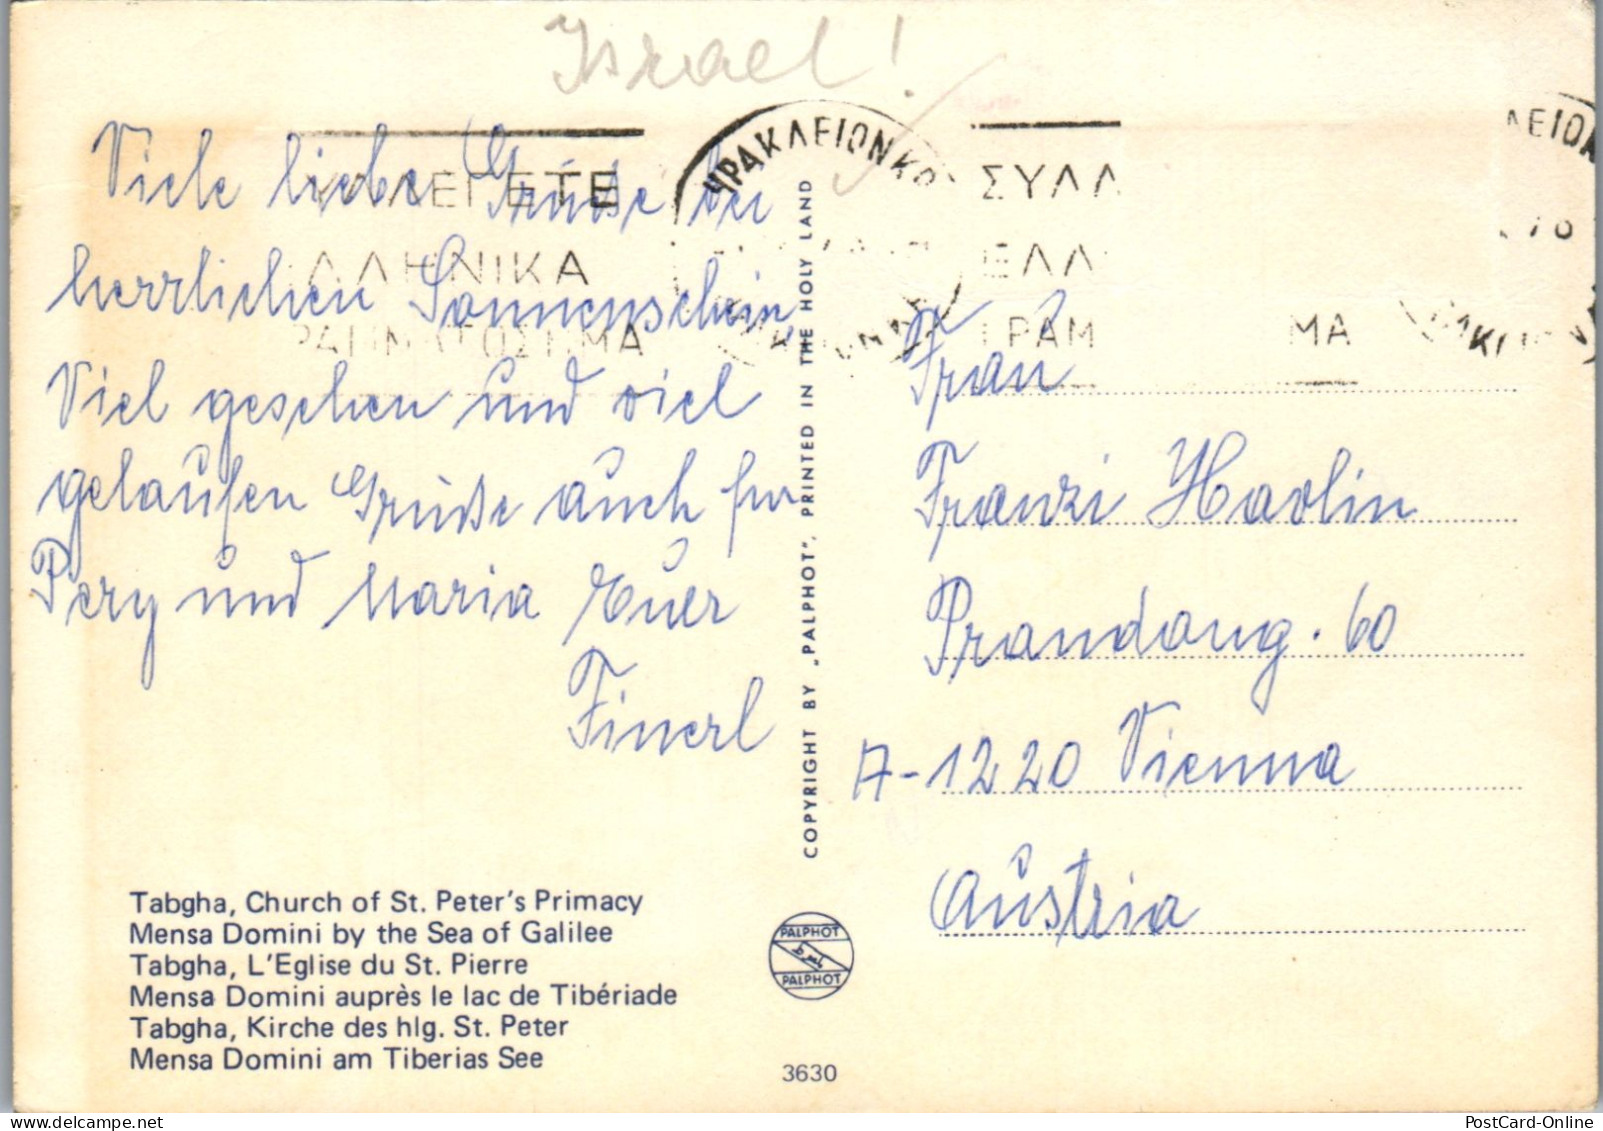 Israel!
Viele liebe Grüsse bei
herrlichen Sonnenschein
Viel gesehen und viel
gelaufen Grüße auch für
Pery und Maria Euer
Finerl
Tabgha, Church of St. Peter's Primacy
Mensa Domini by the Sea of Galilee
Tabgha, L'Eglise du St. Pierre
Mensa Domini auprès le lac de Tibériade
Tabgha, Kirche des hlg. St. Peter
Mensa Domini am Tiberias See
COPYRIGHT BY „PALPHOT", PRINTED IN THE HOLY LAND
PALPHOT
PALPHOT
3630
ΗΡΑΚΛΕΙΟΝ ΚΡ
ΣΥΛΛ
ΕΛΛ
ΓΡΑΜ ΜΑ
ΛΕΙΟΝ
Frau
Franzi Havlin
Prandaug. 60
A-1220 Vienna
Austria
PostCard-Online